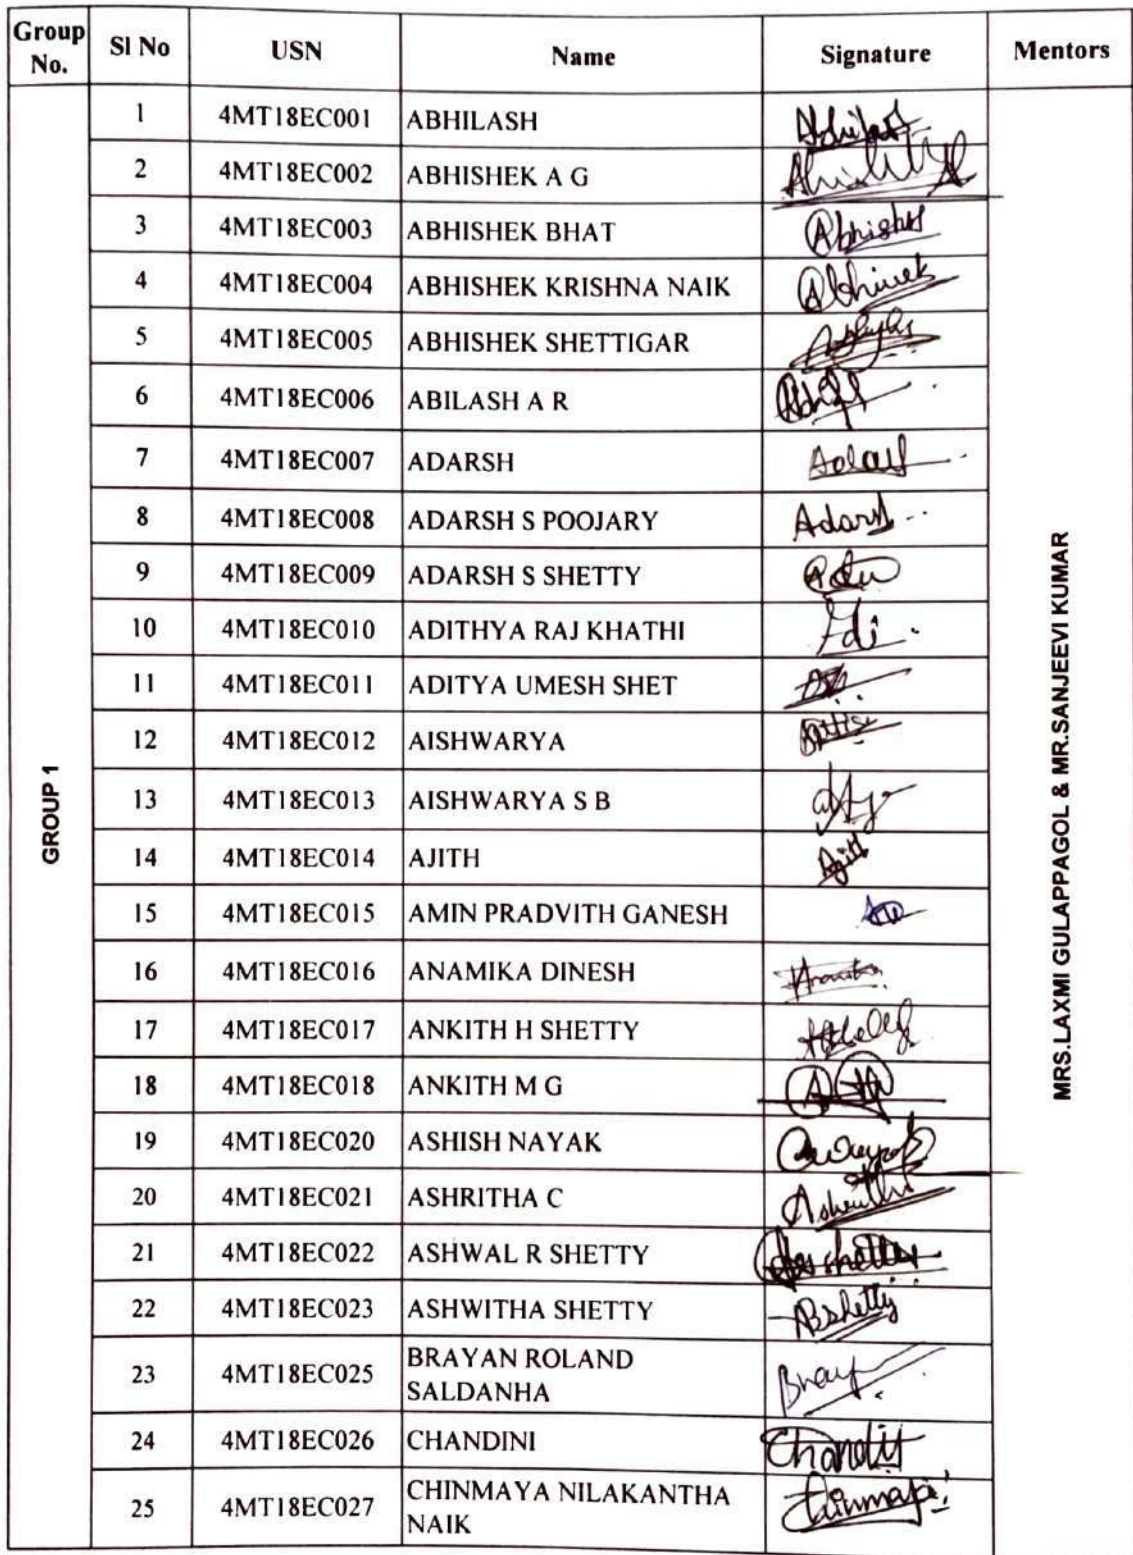 Group No. Sl No USN Name Signature Mentors
GROUP 1
1 4MT18EC001 ABHILASH Abhilash
2 4MT18EC002 ABHISHEK A G
3 4MT18EC003 ABHISHEK BHAT Abhishek
4 4MT18EC004 ABHISHEK KRISHNA NAIK Abhishek
5 4MT18EC005 ABHISHEK SHETTIGAR
6 4MT18EC006 ABILASH A R
7 4MT18EC007 ADARSH Adarsh
8 4MT18EC008 ADARSH S POOJARY Adarsh
9 4MT18EC009 ADARSH S SHETTY
10 4MT18EC010 ADITHYA RAJ KHATHI Adi
11 4MT18EC011 ADITYA UMESH SHET
12 4MT18EC012 AISHWARYA
13 4MT18EC013 AISHWARYA S B
14 4MT18EC014 AJITH Ajith
15 4MT18EC015 AMIN PRADVITH GANESH
16 4MT18EC016 ANAMIKA DINESH Anamika
17 4MT18EC017 ANKITH H SHETTY
18 4MT18EC018 ANKITH M G
19 4MT18EC020 ASHISH NAYAK
20 4MT18EC021 ASHRITHA C Ashritha
21 4MT18EC022 ASHWAL R SHETTY
22 4MT18EC023 ASHWITHA SHETTY
23 4MT18EC025 BRAYAN ROLAND
SALDANHA
24 4MT18EC026 CHANDINI
25 4MT18EC027 CHINMAYA NILAKANTHA
NAIK Chinmaya
MRS.LAXMI GULAPPAGOL & MR.SANJEEVI KUMAR